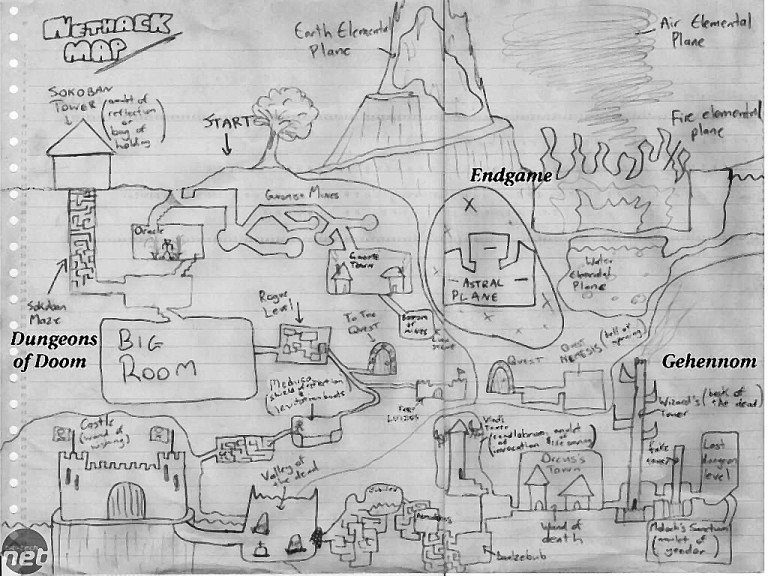 NETHACK
MAP
SOKOBAN
TOWER
(amulet of
reflection
or
bag of
holding)
START
Earth Elemental
Plane
Air Elemental
Plane
Fire elemental
plane
Endgame
Gnomish Mines
Oracle
Gnome
Town
ASTRAL
PLANE
Water
Elemental
Plane
Sokoban
Maze
Rogue
Level
To The
Quest
Bottom
of
mines
Dungeons
of Doom
BIG
ROOM
Quest
Quest
Nemesis
(bell of
opening)
Gehennom
Medusa
(shield of reflection
&
levitation boots)
Fort
Ludios
Wizard's
Tower
(book of
the dead)
Castle
(wand of
wishing)
Vlad's
Tower
(candelabrum
of
invocation
Orcus's
Town
fake
tower
Last
dungeon
level
Valley of
the dead
Juiblex
wand of
death
Baalzebub
Moloch's Sanctum
(amulet of
yendor)
net